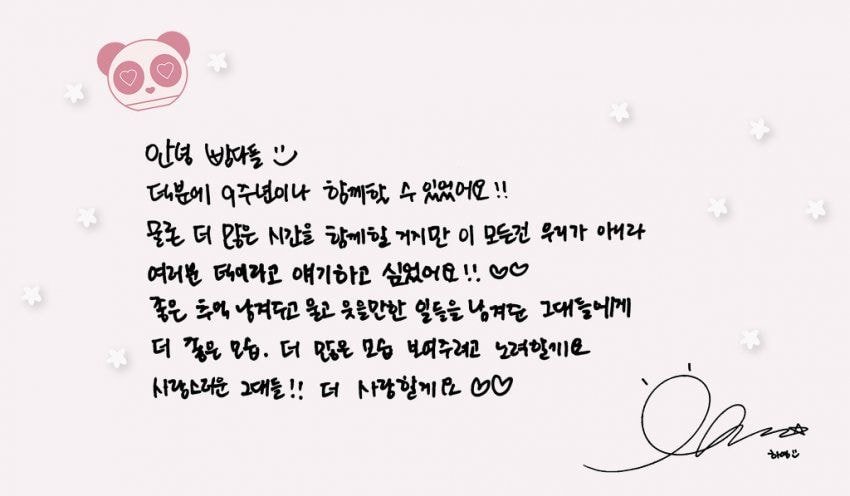 안녕 빵다들 :)
덕분에 9주년이나 함께할 수 있었어요!!
물론 더 많은 시간을 함께할 거지만 이 모든건 우리가 아니라
여러분 덕이라고 얘기하고 싶었어요!! ♡♡
좋은 추억 남겨두고 울고 웃을만한 일들을 남겨둔 그대들에게
더 좋은 모습. 더 많은 모습 보여주려고 노력할게요
사랑스러운 그대들!! 더 사랑할게요 ♡♡
하영:)